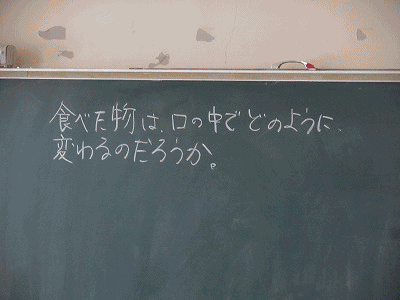 食べた物は、口の中でどのように、
変わるのだろうか。